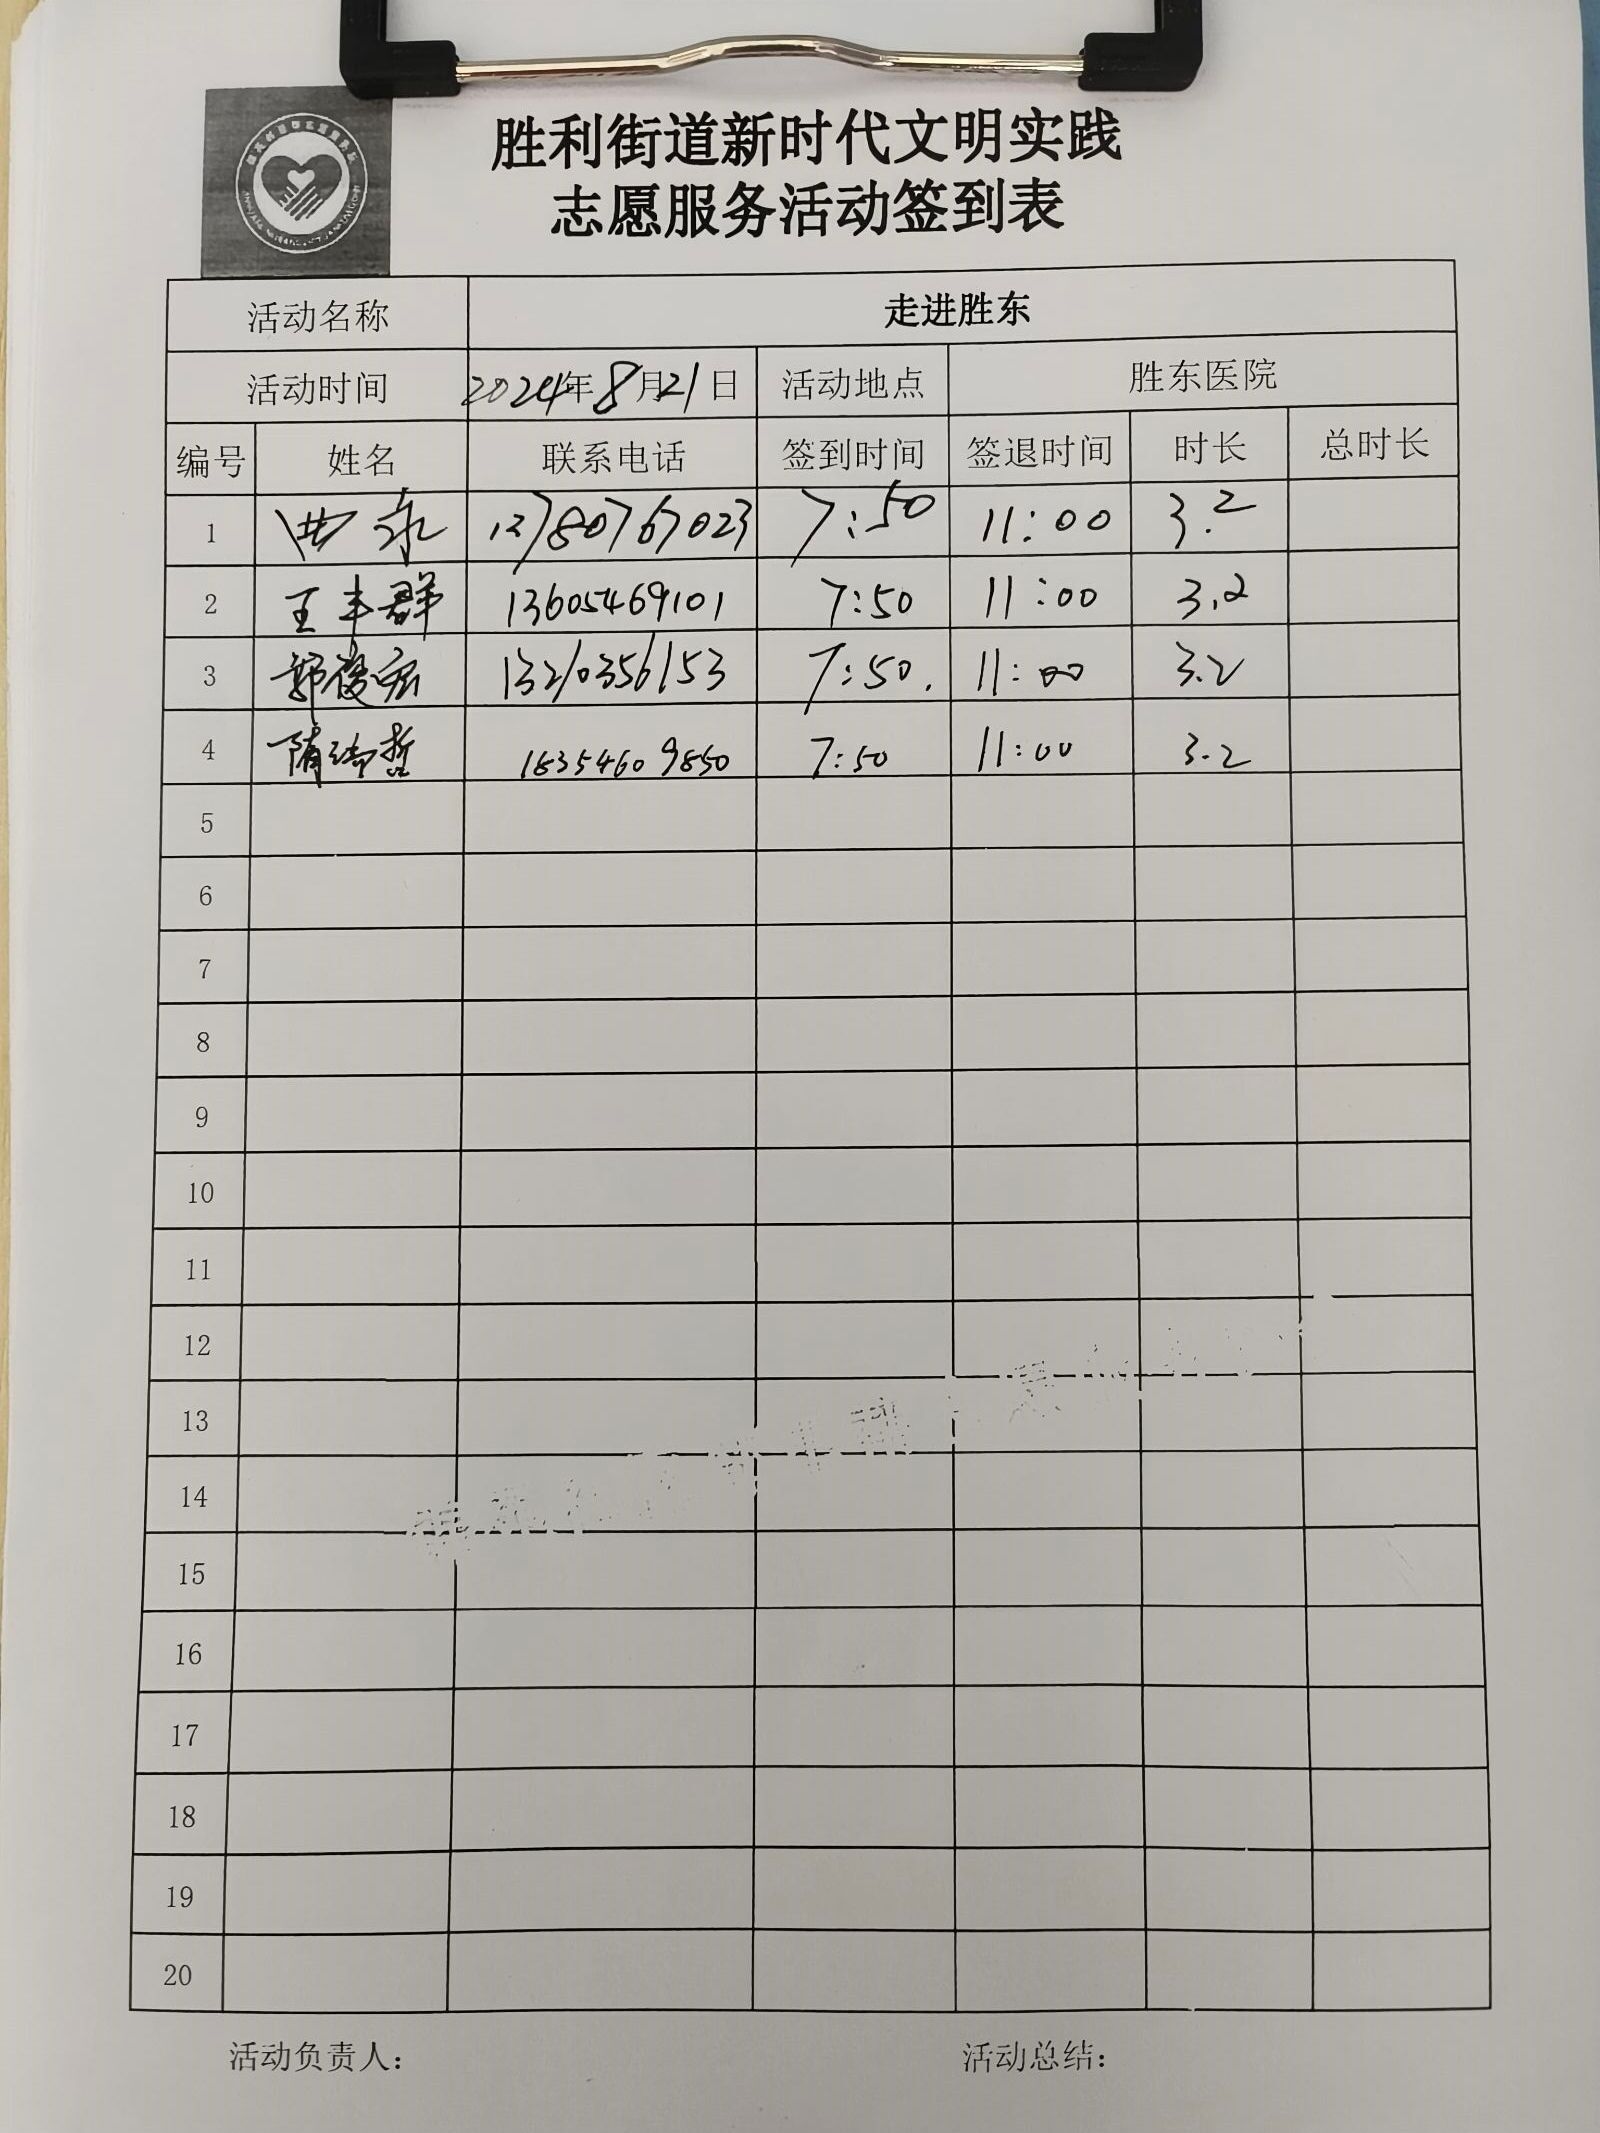 胜利街道新时代文明实践
志愿服务活动签到表
活动名称 走进胜东
活动时间 2024年8月21日 活动地点 胜东医院
编号 姓名 联系电话 签到时间 签退时间 时长 总时长
1 13780767023 7:50 11:00 3.2
2 王丰群 13605469101 7:50 11:00 3.2
3 郭俊宏 13210356153 7:50. 11:00 3.2
4 隋 哲 18354609850 7:50 11:00 3.2
5
6
7
8
9
10
11
12
13
14
15
16
17
18
19
20
活动负责人： 活动总结：